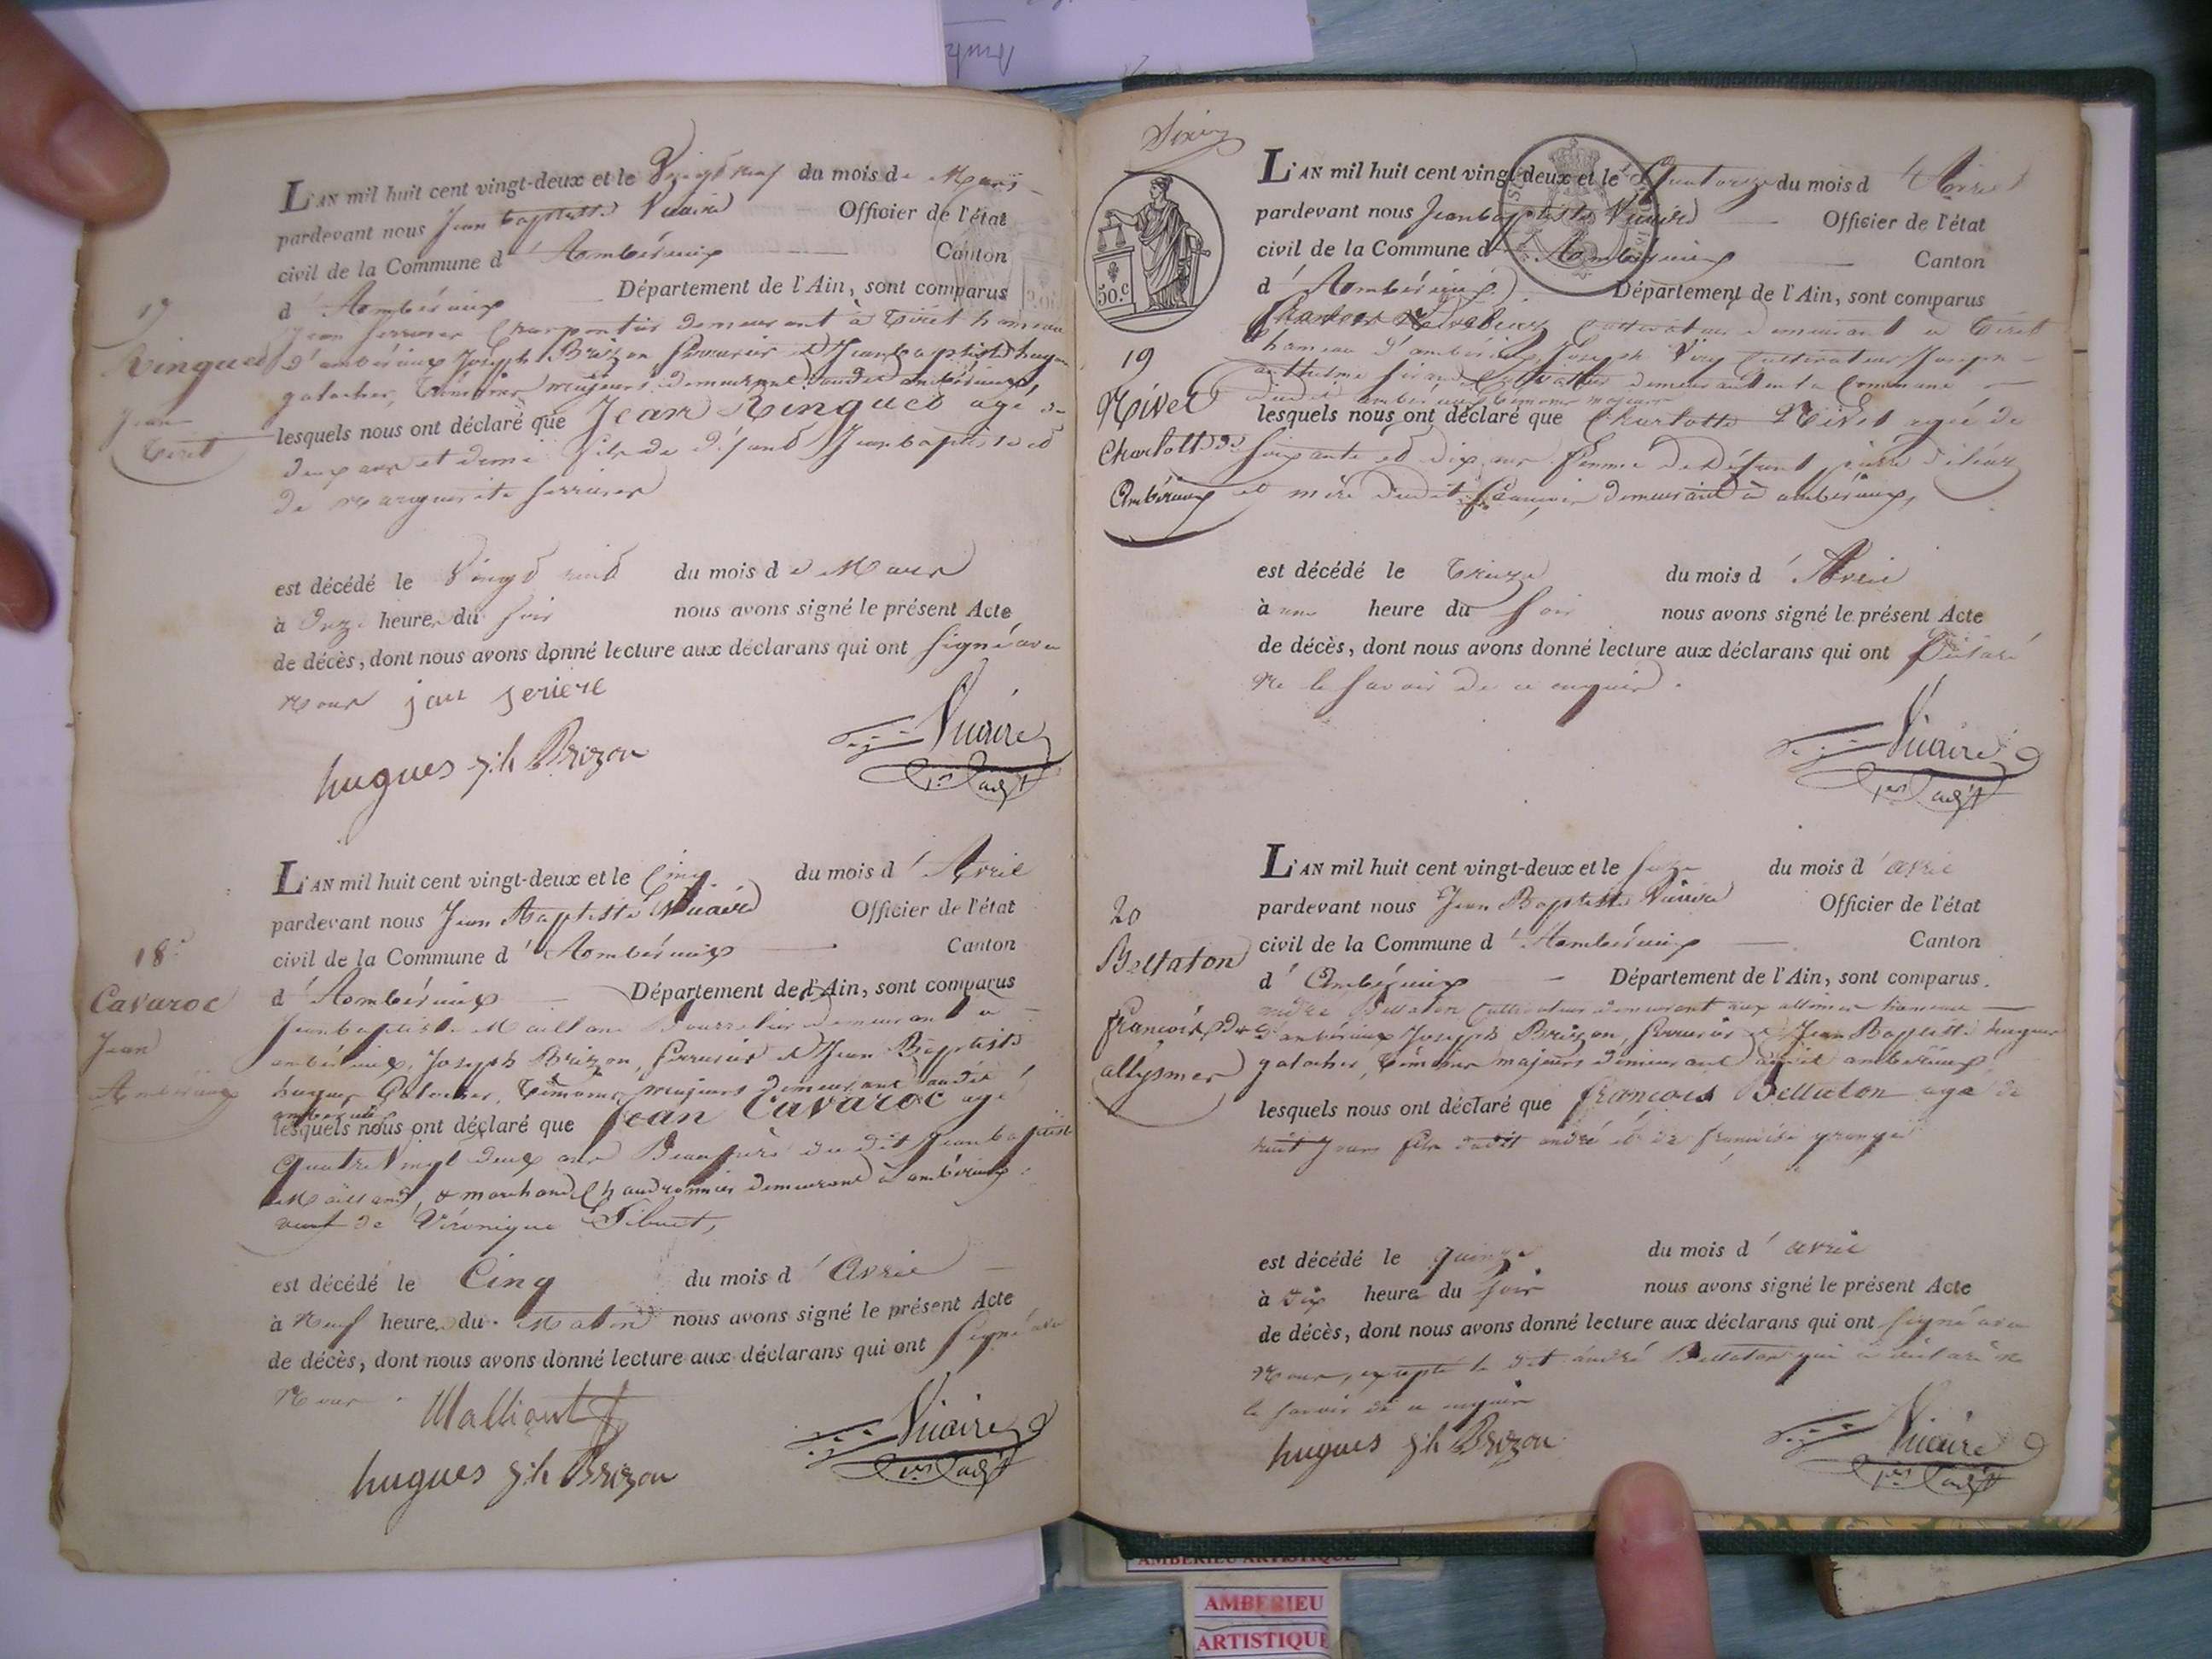 L'AN mil huit cent vingt-deux et le Vingt neuf du mois de Mars
pardevant nous Jean baptiste Vuaire Officier de l'état
civil de la Commune d' Ambérieux Canton
d' Ambérieux Département de l'Ain, sont comparus
17
Jean ferrier Charpentier demeurant à Tiret hameau
Ringuet d'ambérieux Joseph Brizon ferrurier et Jean baptiste hugues
galocher, témoins majeurs demeurant audit ambérieux,
Jean
lesquels nous ont déclaré que Jean Ringuet agé de
Tiret
deux ans et demi fils de défunt Jean baptiste et
de marguerite
est décédé le Vingt du mois de Mars
à Onze heure du soir nous avons signé le présent Acte
de décès, dont nous avons donné lecture aux déclarans qui ont signé avec
Nous
hugues Brizon
Vuaire
1er adjt
L'AN mil huit cent vingt-deux et le Cinq du mois d' Avril
pardevant nous Jean Baptiste Vuaire Officier de l'état
civil de la Commune d' Ambérieux Canton
18
d' Ambérieux Département de l'Ain, sont comparus
Cavaroc
Jean baptiste Bourrelier demeurant a
Jean
ambérieux, Joseph Brizon, ferrurier et Jean Baptiste
Ambérieux
hugues Galocher, témoins majeurs demeurant audit
ambérieux
lesquels nous ont déclaré que Jean Cavaroc agé
Quatre Vingt deux ans Beaupère du dit Jean baptiste
marchand Chaudronnier demeurant à ambérieux
veuf de Véronique
est décédé le Cinq du mois d' Avril
à Neuf heure du Matin nous avons signé le présent Acte
de décès, dont nous avons donné lecture aux déclarans qui ont signé avec
Nous
hugues Brizon
Vuaire
1er adjt
50.c
L'AN mil huit cent vingt-deux et le Quatorze du mois d' Avril
pardevant nous Jean baptiste Vuaire Officier de l'état
civil de la Commune d' Ambérieux Canton
d' Ambérieux Département de l'Ain, sont comparus
cultivateur demeurant a Tiret
19
hameau d'ambérieux, Joseph cultivateur Joseph
anthelme cultivateur demeurant en la Commune
Nivet
dudit ambérieux témoins majeurs
lesquels nous ont déclaré que Charlotte Nivet agée de
Charlotte
soixante et dix ans femme de Défunt pierre
Ambérieux
et mère dudit françois demeurant à ambérieux,
est décédé le Treize du mois d' Avril
à une heure du soir nous avons signé le présent Acte
de décès, dont nous avons donné lecture aux déclarans qui ont Déclaré
Ne le savoir de ce enquis.
Vuaire
1er adjt
L'AN mil huit cent vingt-deux et le seize du mois d' avril
pardevant nous Jean Baptiste Vuaire Officier de l'état
20
civil de la Commune d' Ambérieux Canton
Bellaton
d' Ambérieux Département de l'Ain, sont comparus
andré Bellaton cultivateur demeurant aux allimes hameau
françois
d'ambérieux Joseph Brizon, ferrurier et Jean Baptiste hugues
allysmes
galocher, témoins majeurs demeurant audit ambérieux
lesquels nous ont déclaré que francois Bellaton agé de
huit jours fils dudit andré et de françoise grange
est décédé le quinze du mois d' avril
à dix heure du soir nous avons signé le présent Acte
de décès, dont nous avons donné lecture aux déclarans qui ont signé avec
Nous, excepté le dit andré Bellaton qui a déclaré ne
le savoir de ce enquis
hugues Brizon
Vuaire
1er adjt
AMBERIEU ARTISTIQUE
AMBERIEU
ARTISTIQUE